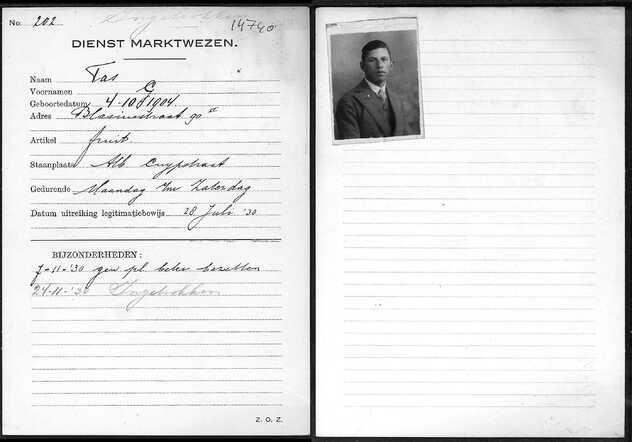 Ingetrokken
No. 202
14740
DIENST MARKTWEZEN.
Naam Tas
Voornamen G
Geboortedatum 4-10-1904.
Adres Blasiusstraat 90 II
Artikel fruit.
Staanplaats Alb. Cuypstraat
Gedurende Maandag t/m Zaterdag
Datum uitreiking legitimatiebewijs 28 Juli '30
BIJZONDERHEDEN:
7-11-'30 gew. pl. beter bezetten
24-11-'30 Ingetrokken
Z. O. Z.